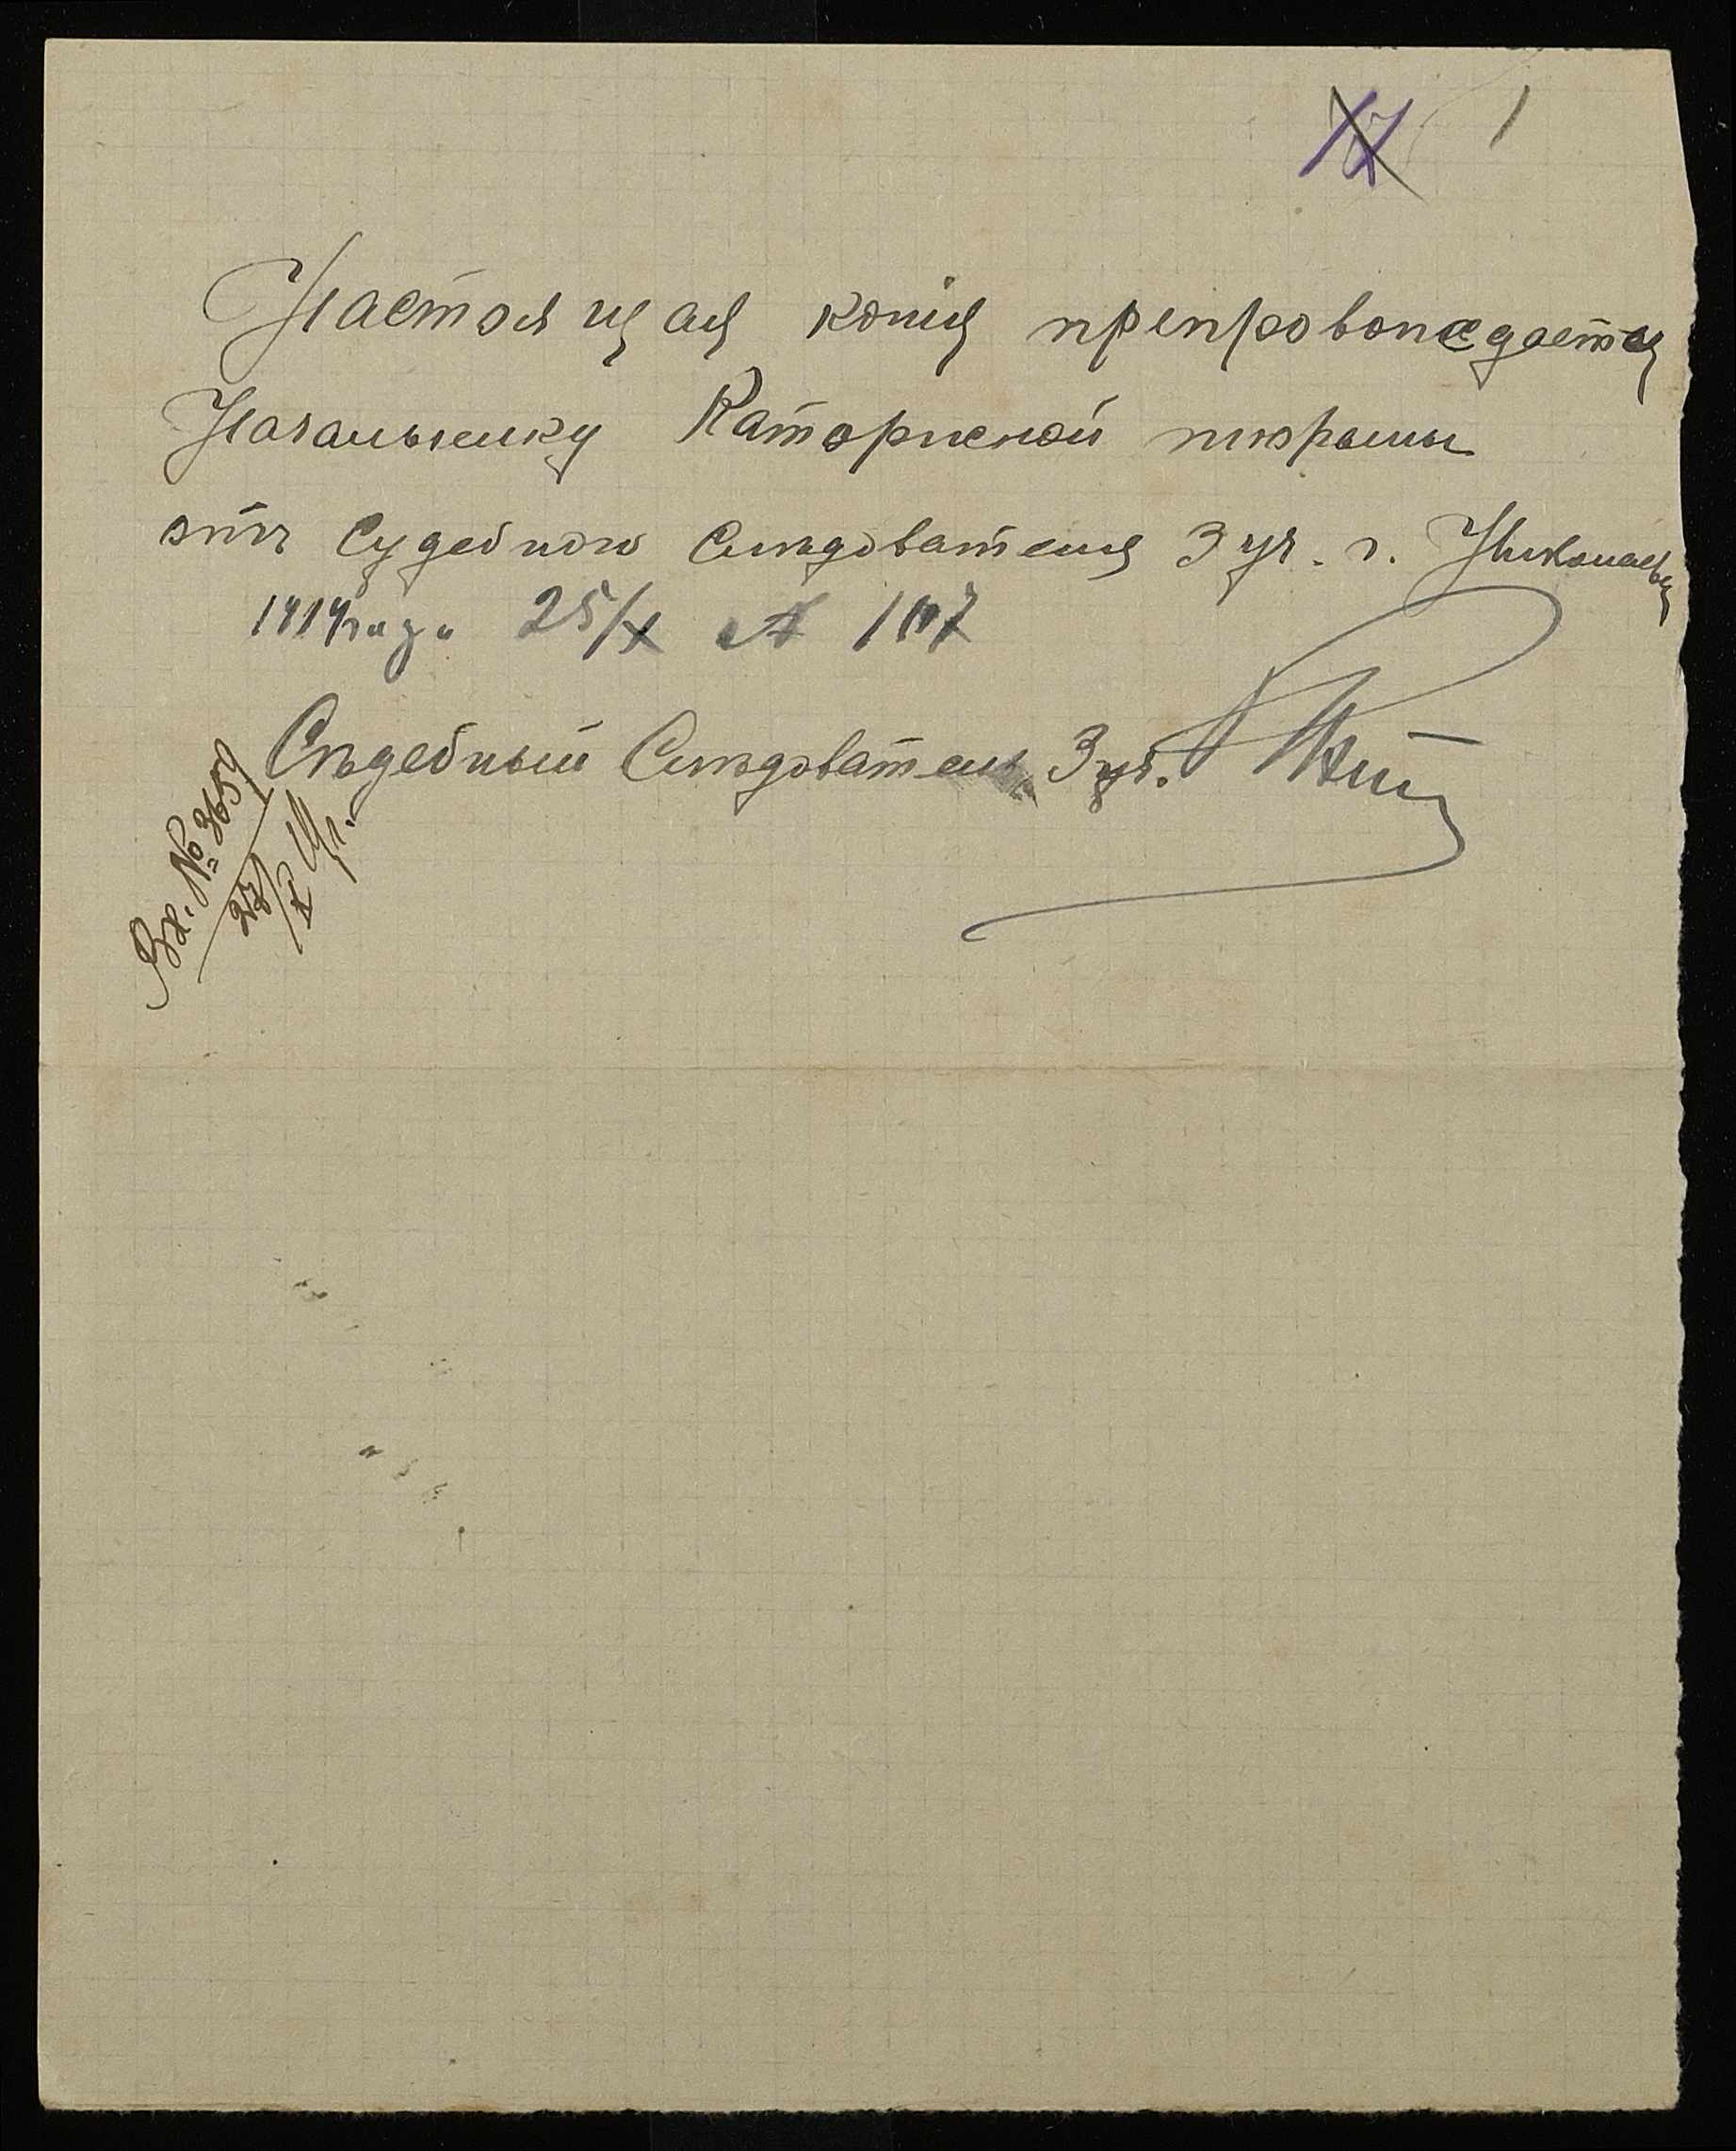 1
Настоящая копія препровождается
Начальнику Каторжной тюрьмы
отъ Судебного Слѣдователя 3 уч. г. Николаева
1919 года 25/X № 107
Съдебный Слѣдователь 3 уч.
Вх. № 3659
27/X 19 г.